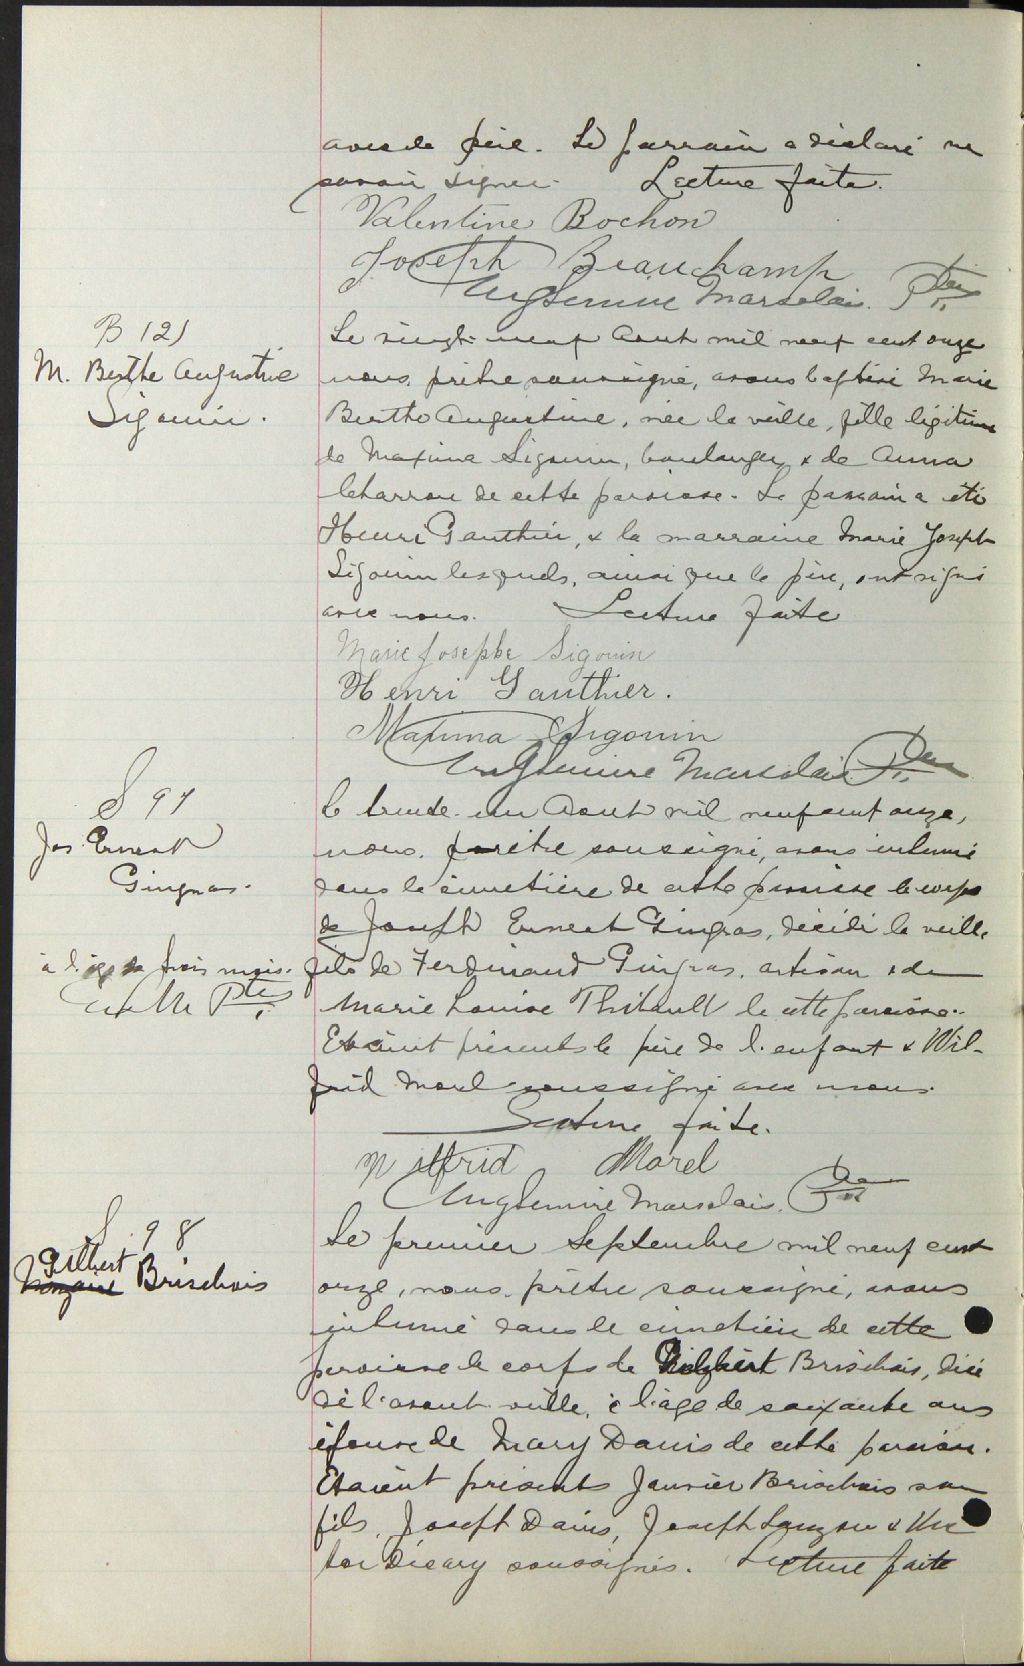 avec le père. Le parrain a déclaré ne
savoir signer. Lecture faite.
Valentine Bochon
Joseph Beauchamp
Marsolais. Ptre
B 121
M. Berthe Augustine
Sigouin.
Le vingt-neuf Aout mil neuf cent onze
nous, prêtre soussigné, avons baptisé Marie
Berthe Augustine, née la veille, fille légitime
de Maxime Sigouin, boulanger & de Anna
Charron de cette paroisse. Le parrain a été
Henri Gauthier, & la marraine Marie Joseph
Sigouin lesquels, ainsi que le père, ont signé
avec nous. Lecture faite
Marie Josephe Sigouin
Henri Gauthier.
Maxima Sigouin
Marsolais Ptre
S 97
Jos Ernest
Gingras.
Le trente-un Aout mil neuf cent onze,
nous, prêtre soussigné, avons inhumé
dans le cimetière de cette paroisse le corps
de Joseph Ernest Gingras, décédé la veille
à l'age de trois mois.
Ptre
fils de Ferdinand Gingras, artisan & de
Marie Louise Thibault de cette paroisse.
Etaient présents le père de l'enfant & Wil-
frid Morel soussigné avec nous.
Lecture faite.
Wilfrid Morel
Marsolais. Ptre
S. 98
Gilbert
Brisebois
Le premier Septembre mil neuf cent
onze, nous, prêtre soussigné, avons
inhumé dans le cimetière de cette
paroisse le corps de Gilbert Brisebois, décé
dé l'avant-veille, à l'âge de soixante ans
époux de Mary Davis de cette paroisse.
Etaient présents Janvier Brisebois son
fils, Joseph Davis, Joseph Lauzon & Vic
tor Décary soussignés. Lecture faite